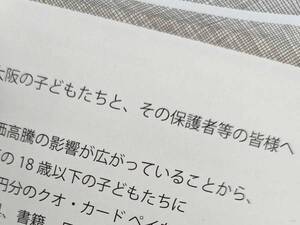 大阪の子どもたちと、その保護者等の皆様へ
価高騰の影響が広がっていることから、
の18歳以下の子どもたちに
円分のクオ・カードペイ
、書籍